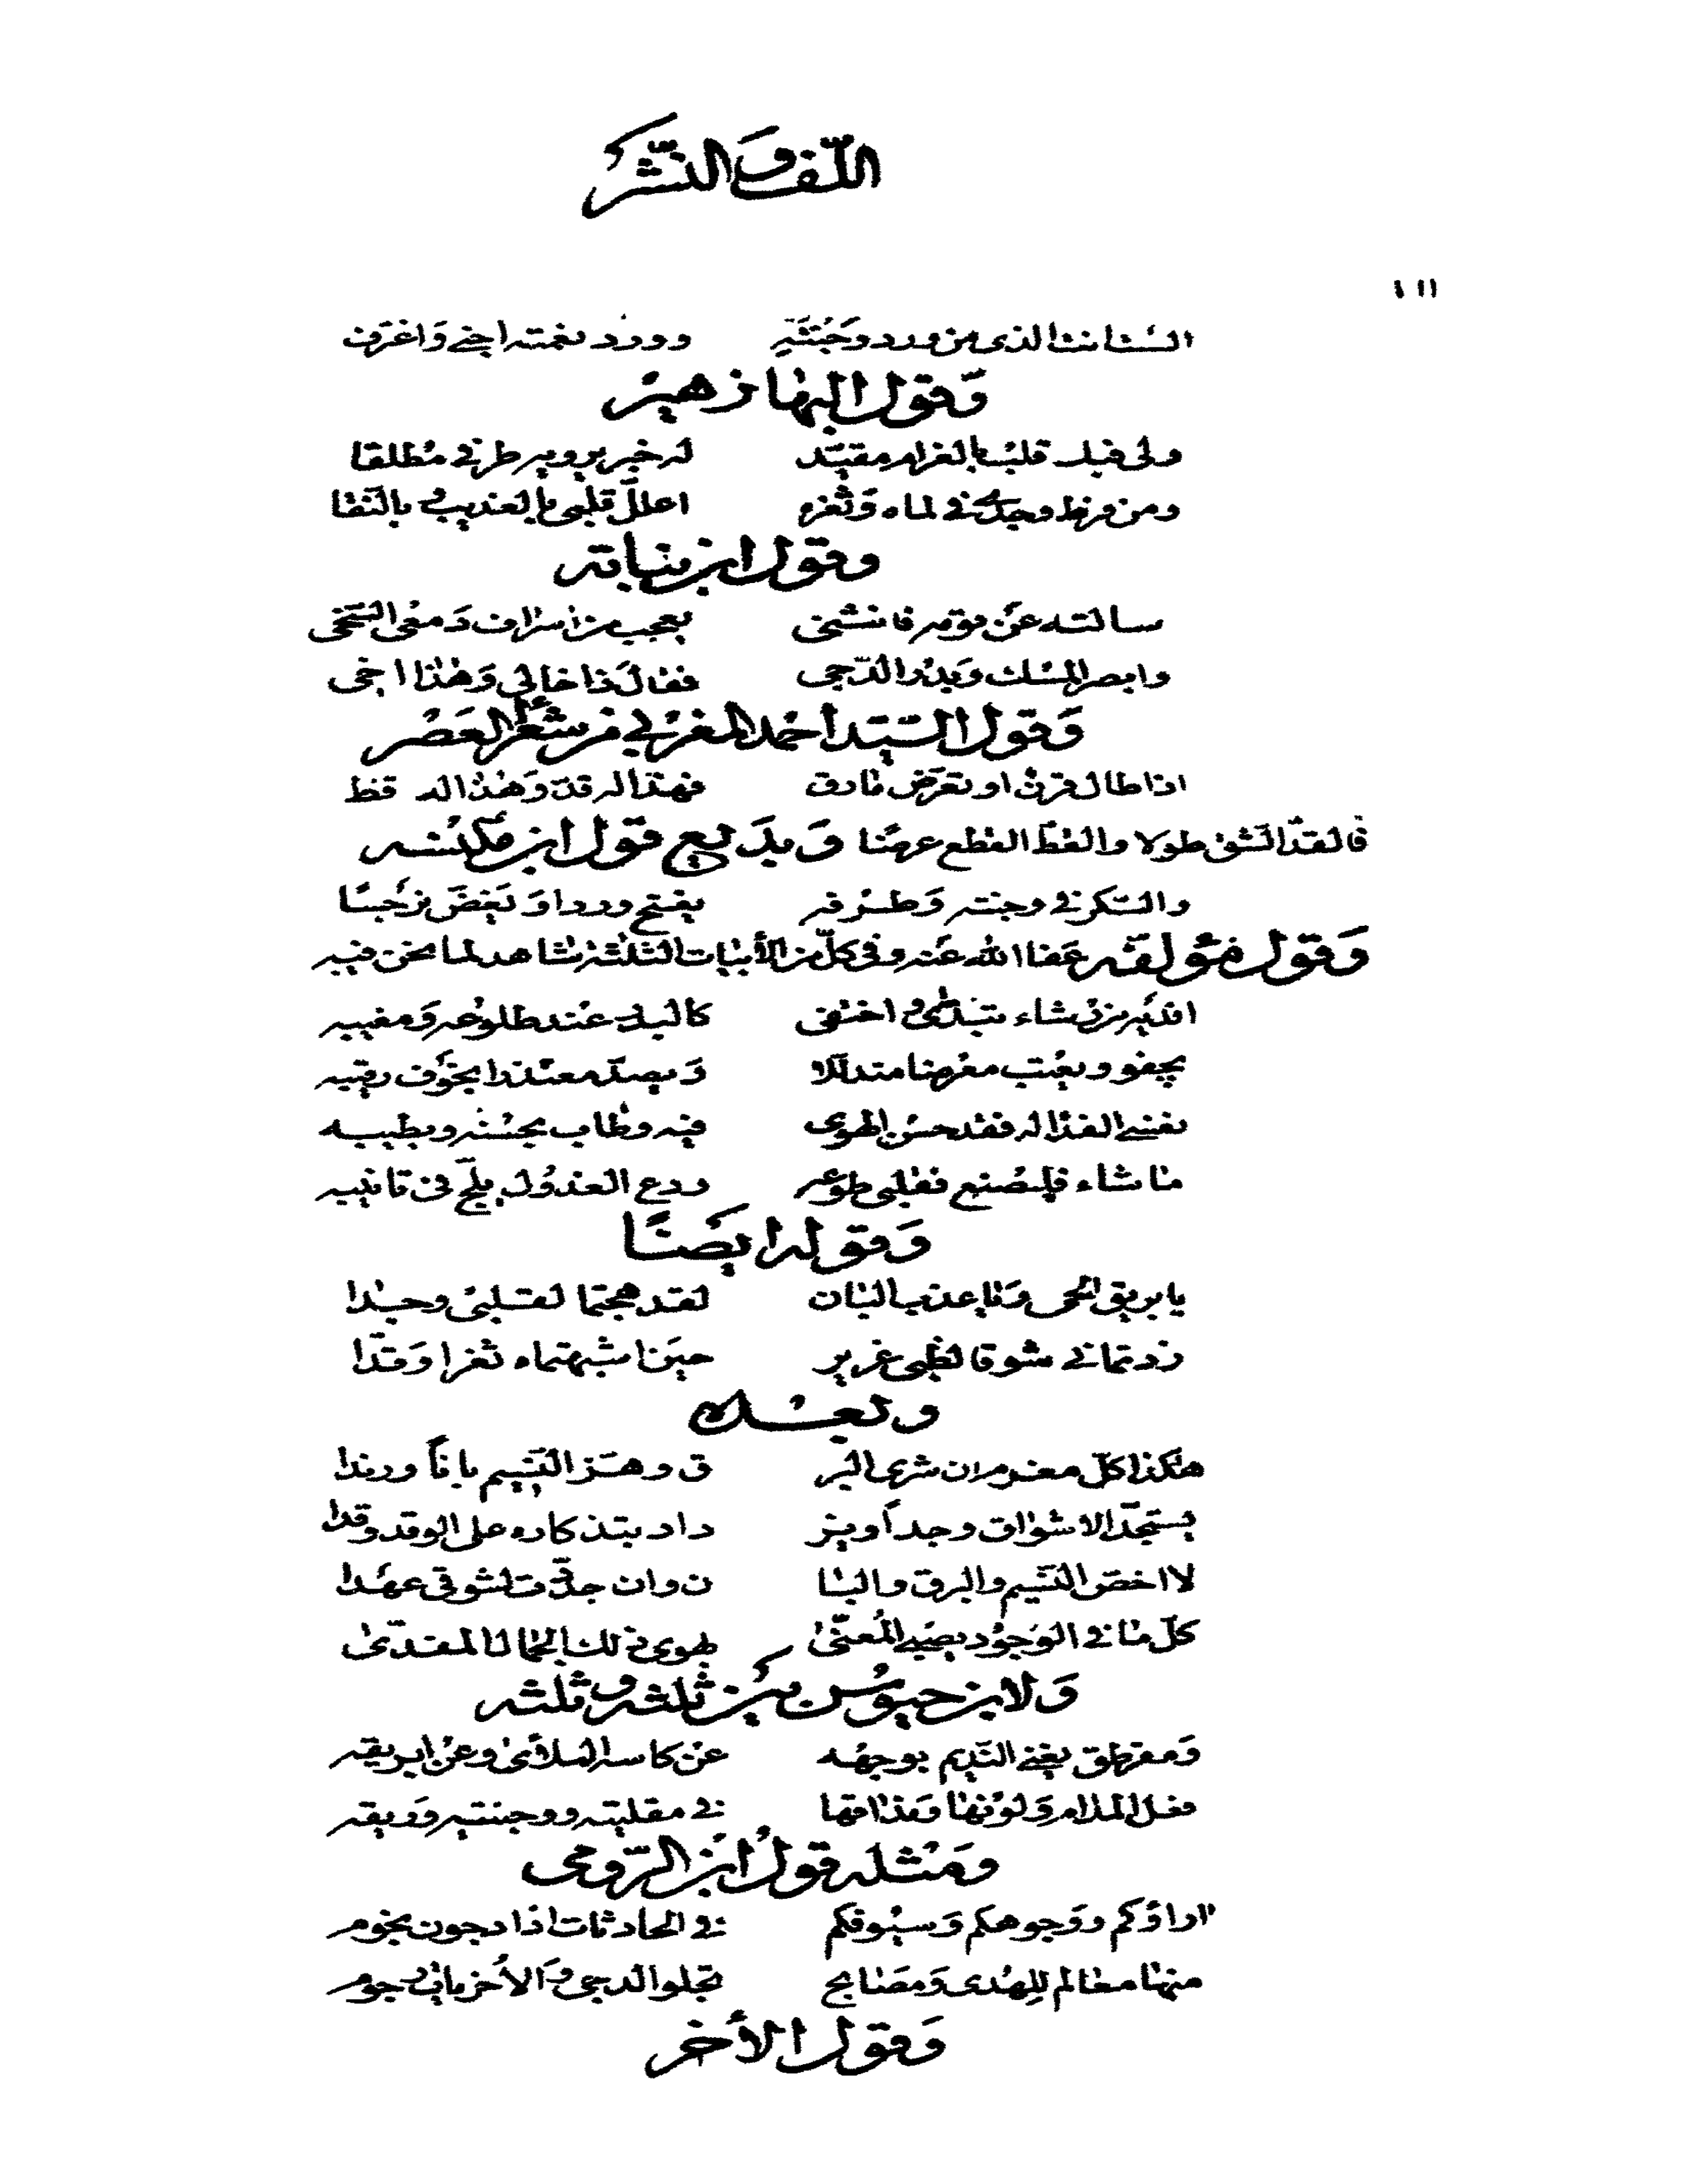 اللّف والنّشر
١١١
الست انت الذى من ورد وجنته وورد نغمته اجنى واغرف
وقول البها زهير
ولى فيك قلب بالغرام مقيّد له خبر يرويه طرفى مطلقا
ومن فرط وجدى فى لماه وثغره اعلل قلبى بالعذيب وبالنقا
وقول ابن نباتة
سالته عن قومه فانثنى يعجب من اسراف دمعى السخى
وابصر المسك وبدر الدّجى فقال ذا خالى وهذا اخى
وقول السيّد احمد المغربى من شعر العصر
اذا طال قرن او تعرّض مارق فهذا له قدّ وهذا له قط
فالقدّ الشق طولا والقطّ القطع عرضا وبديع قول ابن مكنسه
والسكر فى وجنته وطرفه يفتح وردا ويغضّ نرجسا
وقول مؤلفه عفا الله عنه وفى كلّ من الأبيات الثلثة شاهد لما نحن فيه
افديه من رشاء تبدّى واختفى كالبدر عند طلوعه ومغيبه
يجفو ويعتب معرضا متدللا ويصدّ معتذرا بخوف رقيبه
نفسى الفدا له فقد حسن الهوى فيه وطاب بحسنه وبطيبه
ما شاء فليصنع فقلبى طوعه ودع العذول يلجّ فى تانيبه
وقوله ايضًا
يا بريق الحمى ويا عذب البان لقد هجتما لقلبى وجدا
زدتمانى شوقا لظبى غرير حين اشبهتماه ثغرا وقدّا
وبعده
هكذا كلّ مغرم ان شرى البر ق وهزّ النسيم بانا ورندا
يستجدّ الاشواق وجداً ويز داد بتذكاره على الوقد وقدا
لا اخصّ النسيم والبرق والبا ن وان جدّدت لشوقى عهدا
كلّ ما فى الوجود يصبى المعنّى لهوى ذلك الجمال المفدّى
ولابن حيوس بين ثلثه وثلثه
ومقرطق يغنى النديم بوجهه عن كاسه الملأى وعن ابريقه
فعل المدام ولونها ومذاقها فى مقلتيه ووجنتيه وريقه
ومثله قول ابن الرّومى
اراؤكم ووجوهكم وسيوفكم فى الحادثات اذا دجون نجوم
منها معالم للهدى ومصابح تجلو الدجى والأخريات رجوم
وقول الأخر